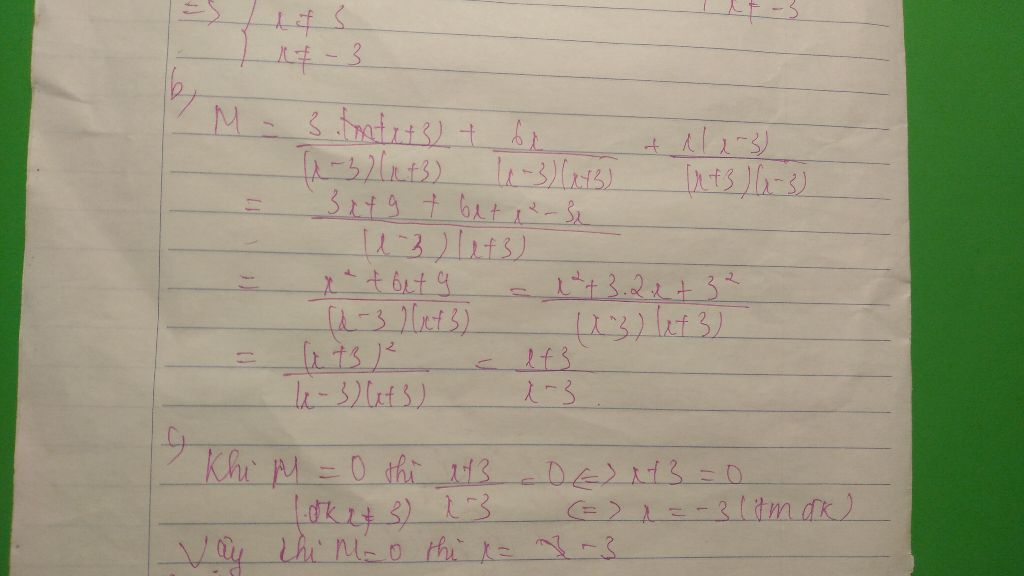 => { x ≠ 3 x ≠ -3
x ≠ -3
b,
M = 3.(x+3)/(x-3)(x+3) + 6x/(x-3)(x+3) + x(x-3)/(x+3)(x-3)
= 3x+9 + 6x + x² - 3x/(x-3)(x+3)
= x² + 6x + 9/(x-3)(x+3) = x² + 3.2x + 3²/(x-3)(x+3)
= (x+3)²/(x-3)(x+3) = x+3/x-3
c,
Khi M = 0 thì x+3/x-3 = 0 <=> x+3 = 0
(đk x ≠ 3) <=> x = -3 (tm đk)
Vậy khi M=0 thì x = -3